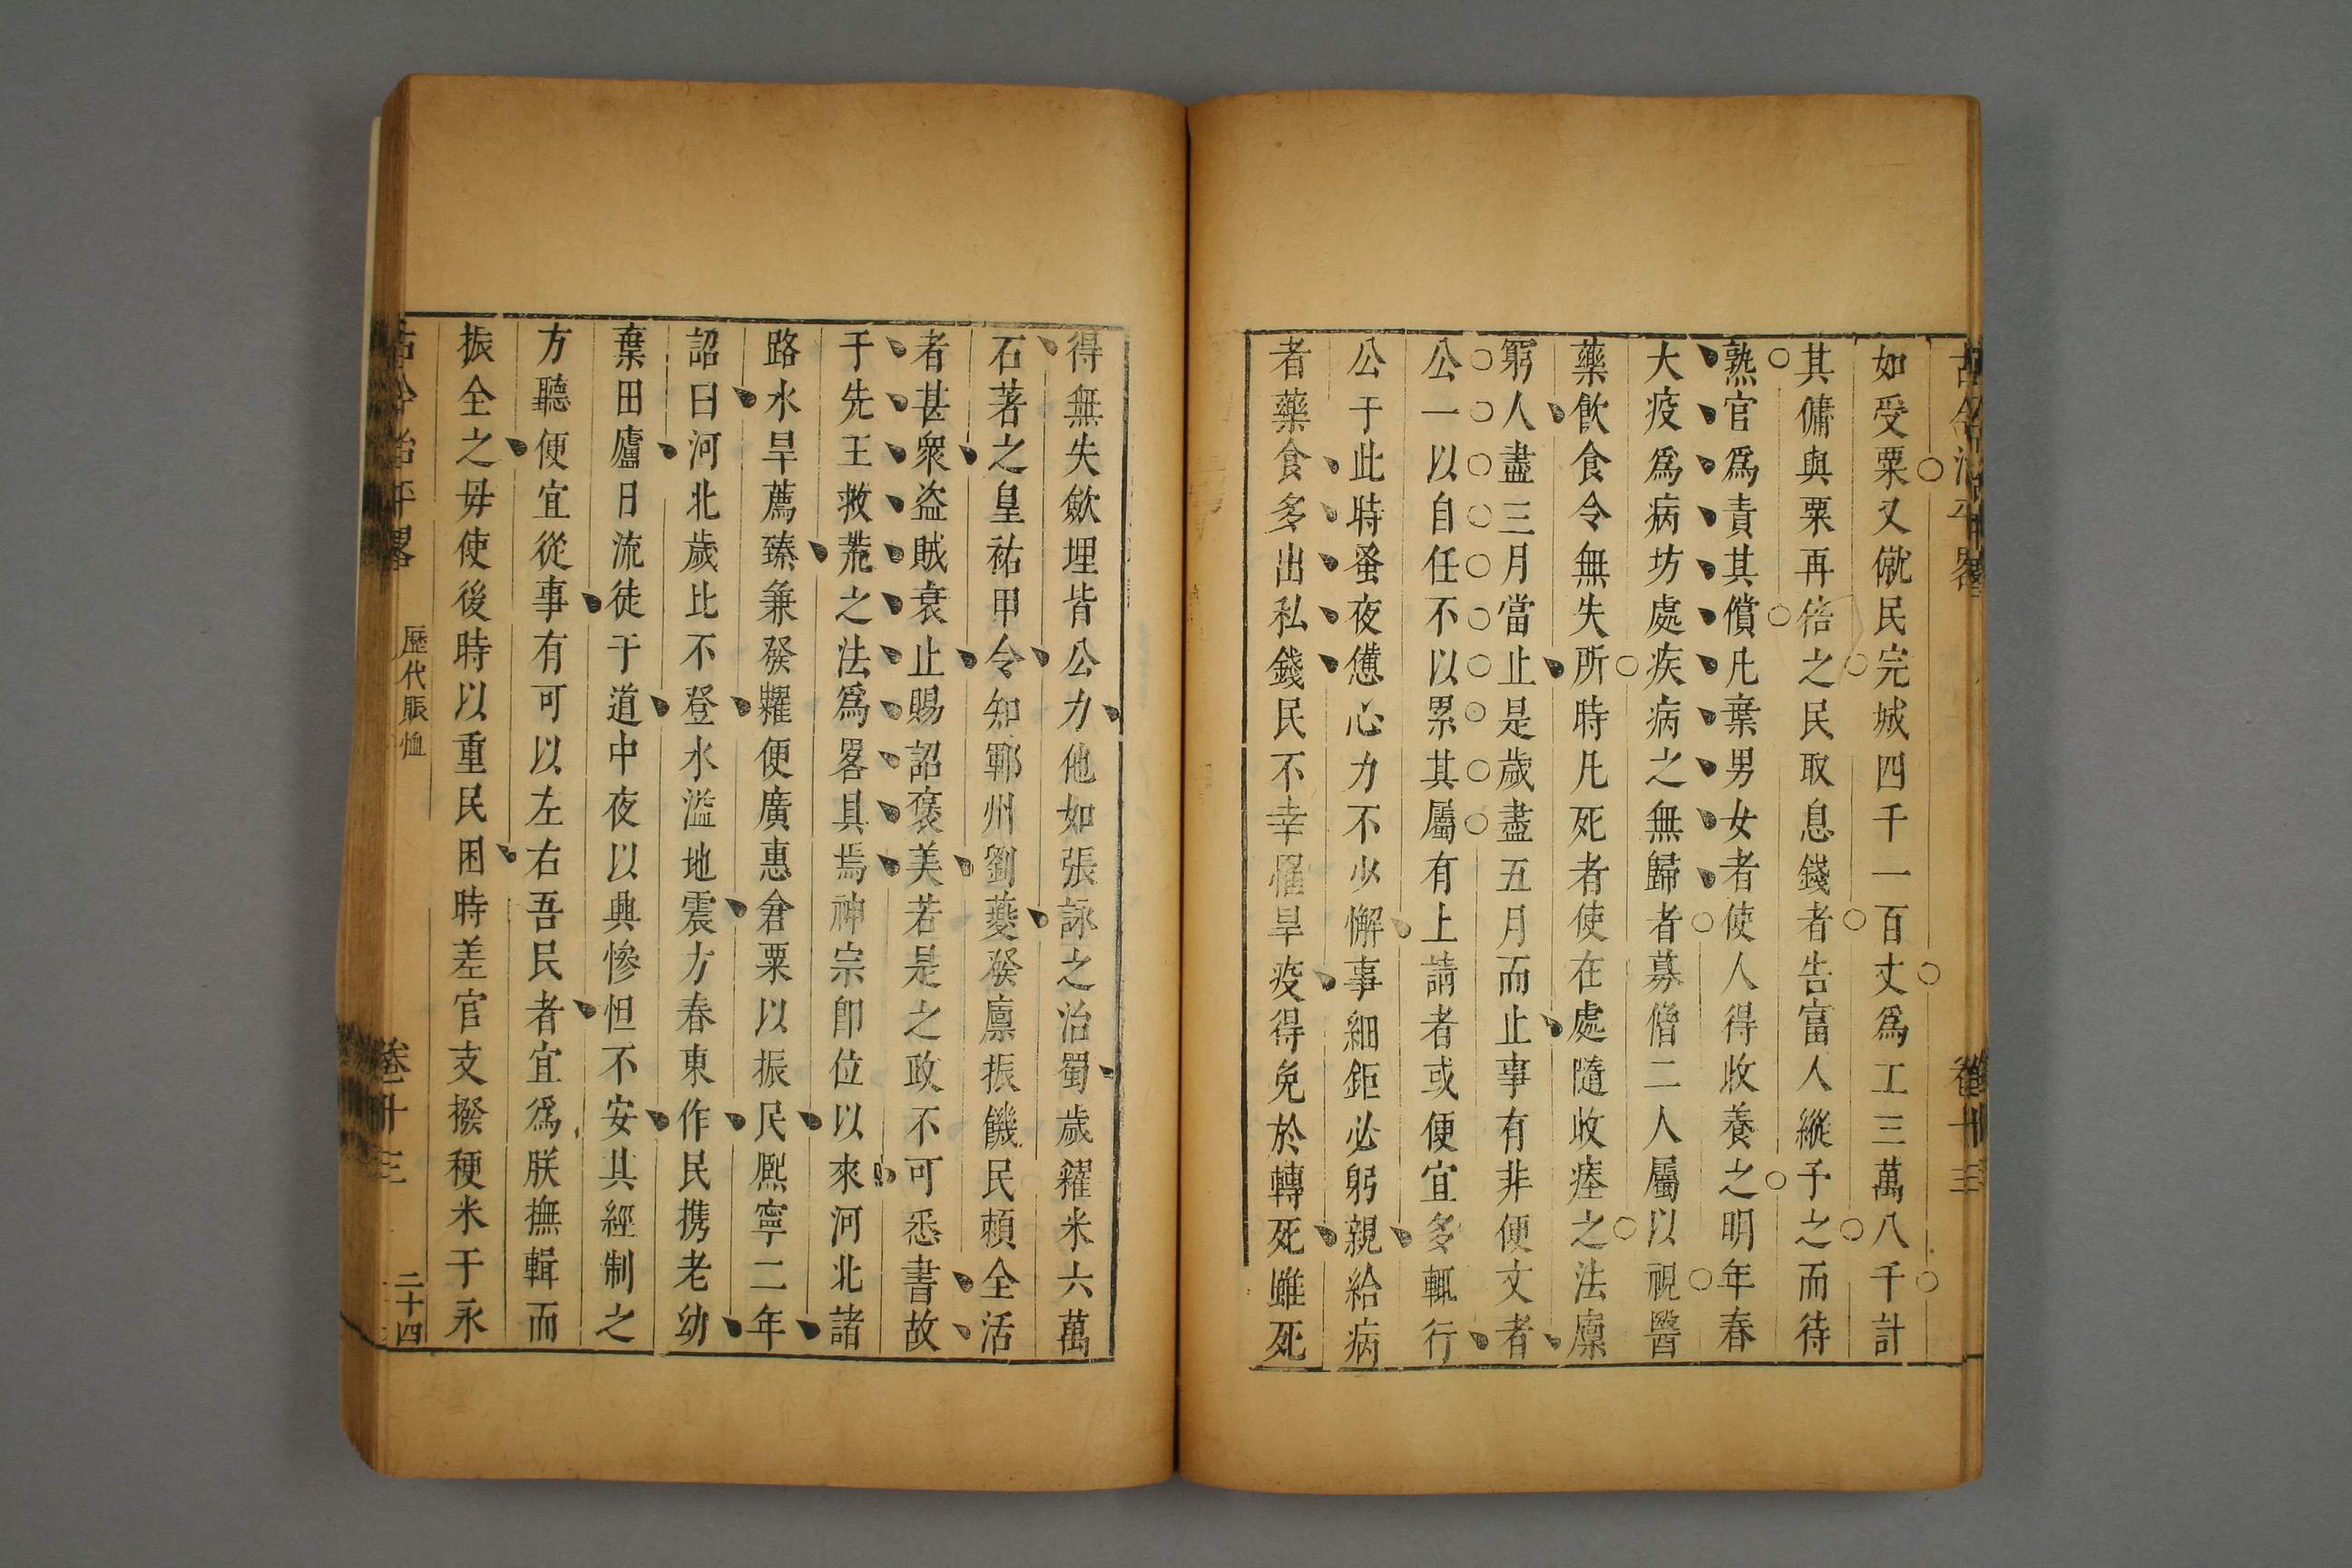 古今治平畧
卷十三
如受粟又僦民完城四千一百丈爲工三萬八千計
其傭與粟再倍之民取息錢者告富人縱予之而待
熟官爲責其償凡棄男女者使人得收養之明年春
大疫爲病坊處疾病之無歸者募僧二人屬以視醫
藥飲食令無失所時凡死者使在處隨收瘞之法廩
窮人盡三月當止是歲盡五月而止事有非便文者
公一以自任不以累其屬有上請者或便宜多輒行
公于此時蚤夜憊心力不少懈事細鉅必躬親給病
者藥食多出私錢民不幸罹旱疫得免於轉死雖死
得無失歛埋皆公力他如張詠之治蜀歲糴米六萬
石著之皇祐甲令知鄆州劉夔發廩振饑民頼全活
者甚衆盜賊衰止賜詔褒美若是之政不可悉書故
于先王救荒之法爲畧具焉神宗卽位以來河北諸
路水旱薦臻兼發糴便廣惠倉粟以振民熈寧二年
詔曰河北歲比不登水溢地震方春東作民携老幼
棄田廬日流徙于道中夜以興慘怛不安其經制之
方聽便宜從事有可以左右吾民者宜爲朕撫輯而
振全之毋使後時以重民困時差官支撥稉米于永
古今治平畧
歷代賑恤
卷十三
二十四